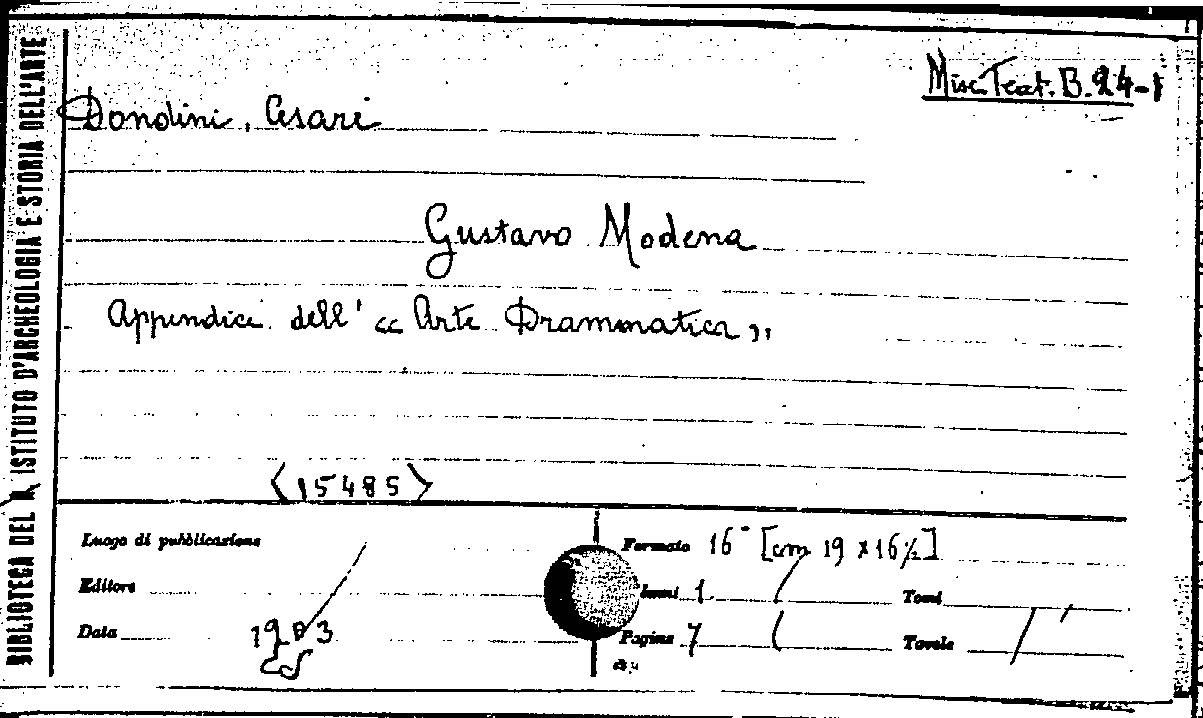 BIBLIOTECA DEL R. ISTITUTO D'ARCHEOLOGIA E STORIA DELL'ARTE
Misc. Teat. B. 24-1
Dondini, Cesare
Gustavo Modena
Appendice dell' « Arte Drammatica »
<15485>
Luogo di pubblicazione
Editore
Data 1903
Formato 16° [cm 19 x 16½]
Tomi
Pagine 7
Tavole